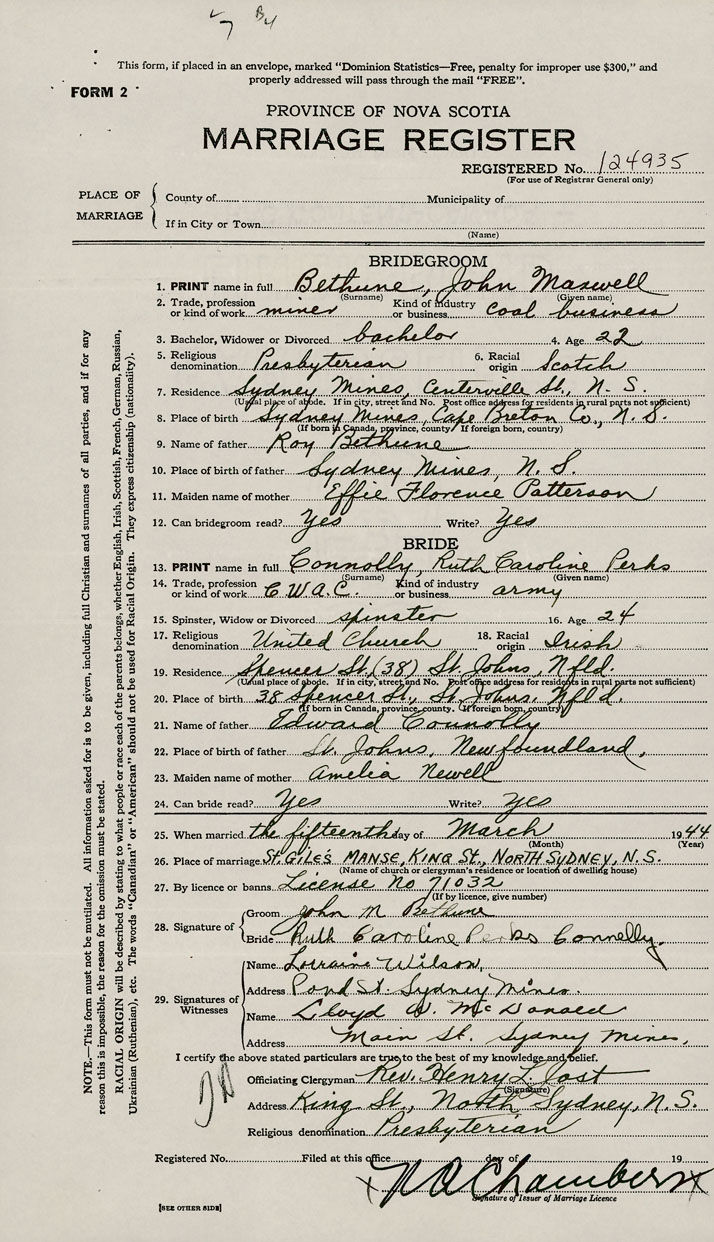 This form, if placed in an envelope, marked "Dominion Statistics—Free, penalty for improper use $300," and
properly addressed will pass through the mail "FREE".
FORM 2
PROVINCE OF NOVA SCOTIA
MARRIAGE REGISTER
REGISTERED No. 124935
(For use of Registrar General only)
PLACE OF MARRIAGE
County of Municipality of
If in City or Town
(Name)
BRIDEGROOM
1. PRINT name in full Bethune, John Maxwell
(Surname) (Given name)
2. Trade, profession or kind of work miner Kind of industry or business coal business
3. Bachelor, Widower or Divorced bachelor 4. Age 22
5. Religious denomination Presbyterian 6. Racial origin Scotch
7. Residence Sydney Mines, Centerville St., N. S.
(Usual place of abode. If in city, street and No. Post office address for residents in rural parts not sufficient)
8. Place of birth Sydney Mines, Cape Breton Co., N. S.
(If born in Canada, province, county. If foreign born, country)
9. Name of father Roy Bethune
10. Place of birth of father Sydney Mines, N. S.
11. Maiden name of mother Effie Florence Patterson
12. Can bridegroom read? Yes Write? Yes
BRIDE
13. PRINT name in full Connolly, Ruth Caroline Perks
(Surname) (Given name)
14. Trade, profession or kind of work C.W.A.C. Kind of industry or business army
15. Spinster, Widow or Divorced spinster 16. Age 24
17. Religious denomination United Church 18. Racial origin Irish
19. Residence Spencer St. (38) St. Johns, Nfld.
(Usual place of abode. If in city, street and No. Post office address for residents in rural parts not sufficient)
20. Place of birth 38 Spencer St., St. Johns, Nfld.
(If born in Canada, province, county. If foreign born, country)
21. Name of father Edward Connolly
22. Place of birth of father St. Johns, Newfoundland,
23. Maiden name of mother Amelia Newell
24. Can bride read? Yes Write? Yes
25. When married the fifteenth day of March 1944
(Month) (Year)
26. Place of marriage ST. GILES MANSE, KING ST., NORTH SYDNEY, N.S.
(Name of church or clergyman's residence or location of dwelling house)
27. By licence or banns License no 71032
(If by licence, give number)
28. Signature of
Groom John M Bethune
Bride Ruth Caroline Perks Connolly.
29. Signatures of Witnesses
Name Lorraine Wilson,
Address Pond St. Sydney Mines.
Name Lloyd W. McDonald
Address Main St. Sydney Mines,
I certify the above stated particulars are true to the best of my knowledge and belief.
Officiating Clergyman Rev. Henry L. Jost
(Signature)
Address King St., North Sydney, N.S.
Religious denomination Presbyterian
Registered No. Filed at this office day of 19
Chambers
Signature of Issuer of Marriage Licence
[SEE OTHER SIDE]
NOTE.—This form must not be mutilated. All information asked for is to be given, including full Christian and surnames of all parties, and if for any
reason this is impossible, the reason for the omission must be stated.
RACIAL ORIGIN will be described by stating to what people or race each of the parents belongs, whether English, Irish, Scottish, French, German, Russian,
Ukrainian (Ruthenian), etc. The words "Canadian" or "American" should not be used for Racial Origin. They express citizenship (nationality).